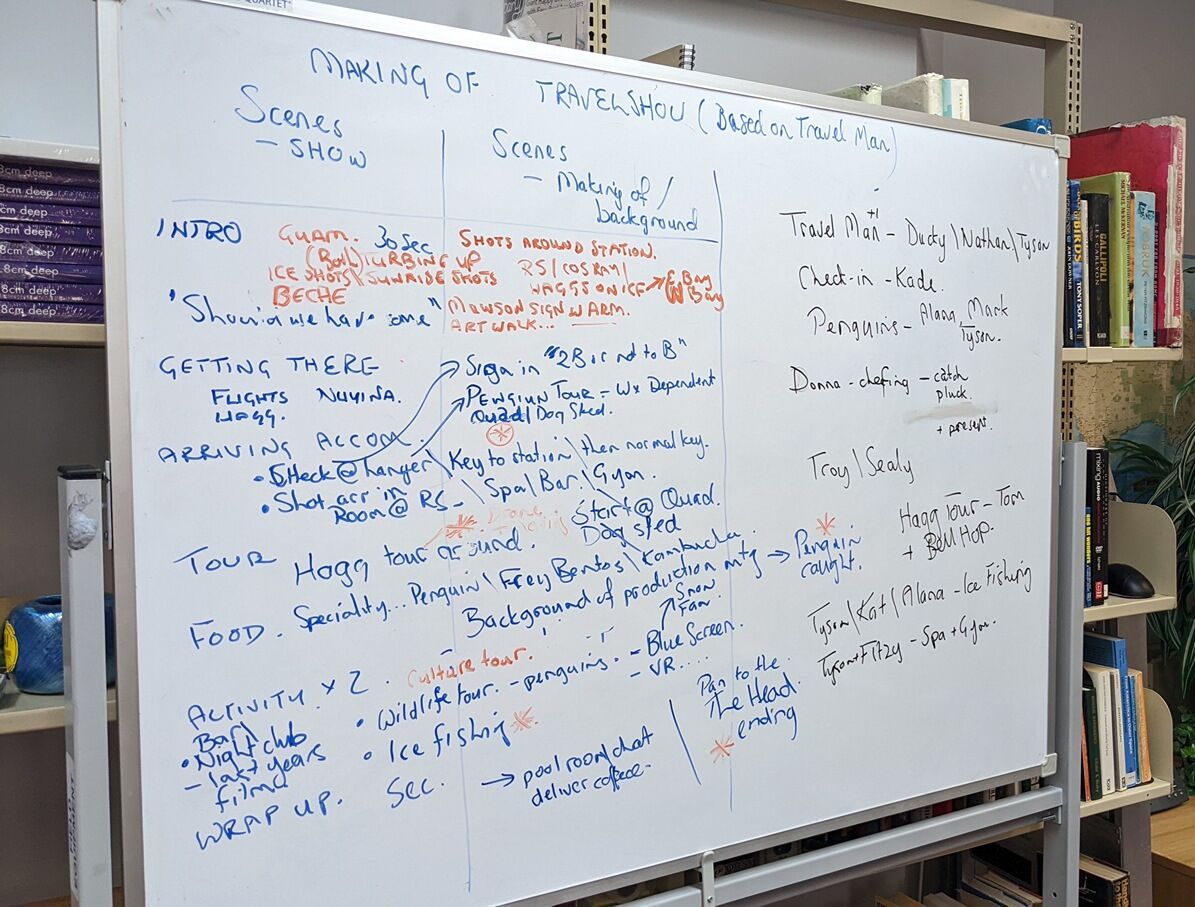 QUARTET
MAKING OF TRAVELSHOW (Based on Travel Man)
Scenes
- SHOW
Scenes
- Making of /
background
INTRO
GUAM. 30 Sec
TURBINE UP
ICE SHOTS \ SUNRISE SHOTS
BECHE
SHOTS AROUND STATION.
RS / COSRAY /
HAGGS ON ICE → E Bay
W Bay
MAWSON SIGN W ARM.
ART WALK...
GETTING THERE
FLIGHTS NUYINA.
HAGG.
Sign in "2B or not to B"
PENGIUN TOUR - Wx Dependent
Quad / Dog Sled.
ARRIVING ACCOM.
• Check @ hanger \ Key to station \ then normal key.
• Shot arr in
Room @ RS - \ Spa / Bar / Gym.
Start @ Quad.
Dog sled
TOUR Hagg tour around.
Drone
FOOD. Speciality... Penguin \ Frey Bentos \ Kambucha
Background of production mtg → Penguin
caught.
Snow
Fan
ACTIVITY x 2. Culture tour.
• Wildlife tour. - penguins. - Blue Screen.
- VR....
Bar \
• Nightclub
- last years
films
• Ice fishing
WRAP UP. Sec. → pool room chat
deliver coffee-
Pan to the
The Head.
ending
+1
Travel Man - Ducty \ Nathan \ Tyson
Check-in - Kade.
Penguins - Alana, Mark
Tyson.
Donna - chefing - catch
pluck.
+ present.
Troy \ Sealy
Hagg Tour - Tom
+ Bell Hop.
Tyson \ Kat / Alana - Ice Fishing
Tyson + Fitzy - Spa + Gym.
8cm deep
8cm deep
8cm deep
8cm deep
8cm deep
8cm deep
8cm deep
BIRDS
TONY SOPER
GALLIPOLI
LES CARLYON
TOBRUK
mixing AUDIO